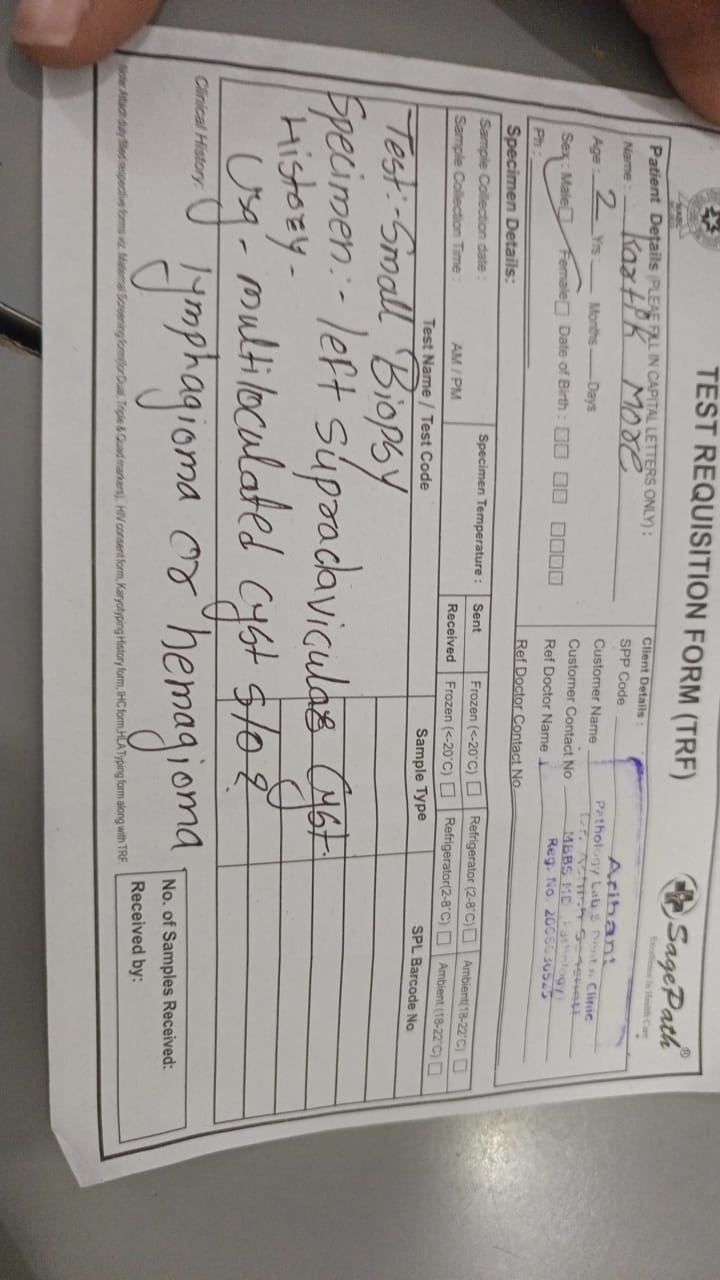 TEST REQUISITION FORM (TRF)
SagePath®
Excellence In Health Care
Patient Details (PLEASE FILL IN CAPITAL LETTERS ONLY) :
Name : Kartik More
Age : 2 Yrs Months Days
Sex : Male Female Date of Birth :
Ph :
Client Details :
SPP Code
Customer Name
Customer Contact No
Ref Doctor Name
Ref Doctor Contact No
Arihant
Pathology Lab & Clinic
MBBS MD Pathology
Reg. No.
Specimen Details:
Sample Collection date :
Sample Collection Time : AM / PM
Specimen Temperature :
Sent Frozen (<-20°C) Refrigerator (2-8°C) Ambient(18-22°C)
Received Frozen (<-20°C) Refrigerator(2-8°C) Ambient (18-22°C)
Test Name / Test Code Sample Type SPL Barcode No
Test:- Small Biopsy
Specimen:- left supraclavicular Cyst.
History -
Usg - multiloculated Cyst s/o ?
lymphagioma or hemagioma
Clinical History:
Note: Attach duly filled respective forms viz. Maternal Screening form(for Dual, Triple & Quad markers), HIV consent form, Karyotyping History form, IHC form,HLA Typing form along with TRF.
No. of Samples Received:
Received by: